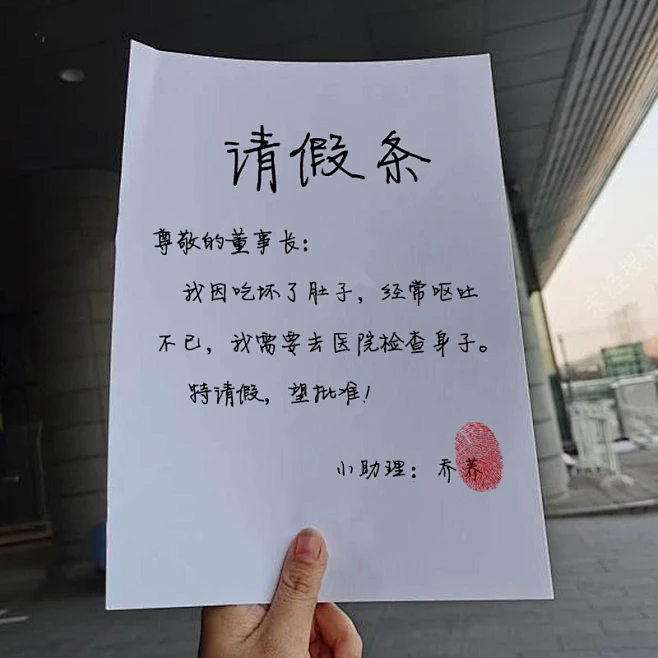 请假条
尊敬的董事长：
我因吃坏了肚子，经常呕吐
不已，我需要去医院检查身子。
特请假，望批准！
小助理：乔荞